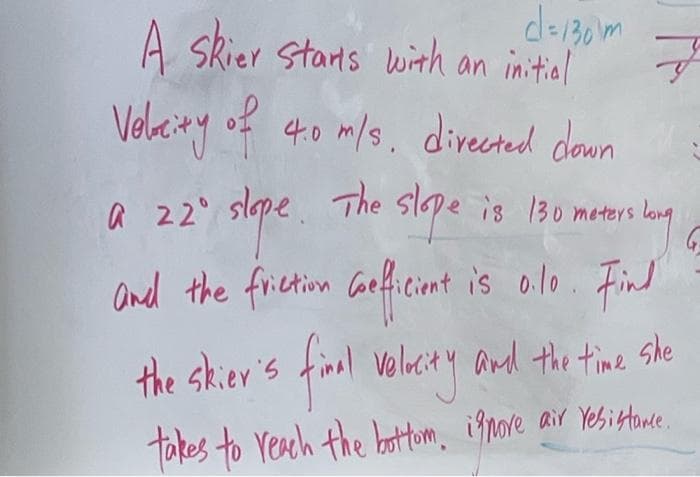 d=130 m
A skier starts with an initial
Velocity of 4.0 m/s. directed down
a 22° slope. The slope is 130 meters long
and the friction coefficient is 0.10. Find
the skier's final velocity and the time she
takes to reach the bottom. ignore air resistance.